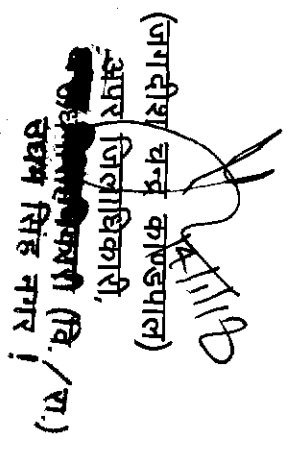 4/1/18
(जगदीश चन्द्र काण्डपाल)
अपर जिलाधिकारी,
(वि./रा.)
उधम सिंह नगर।